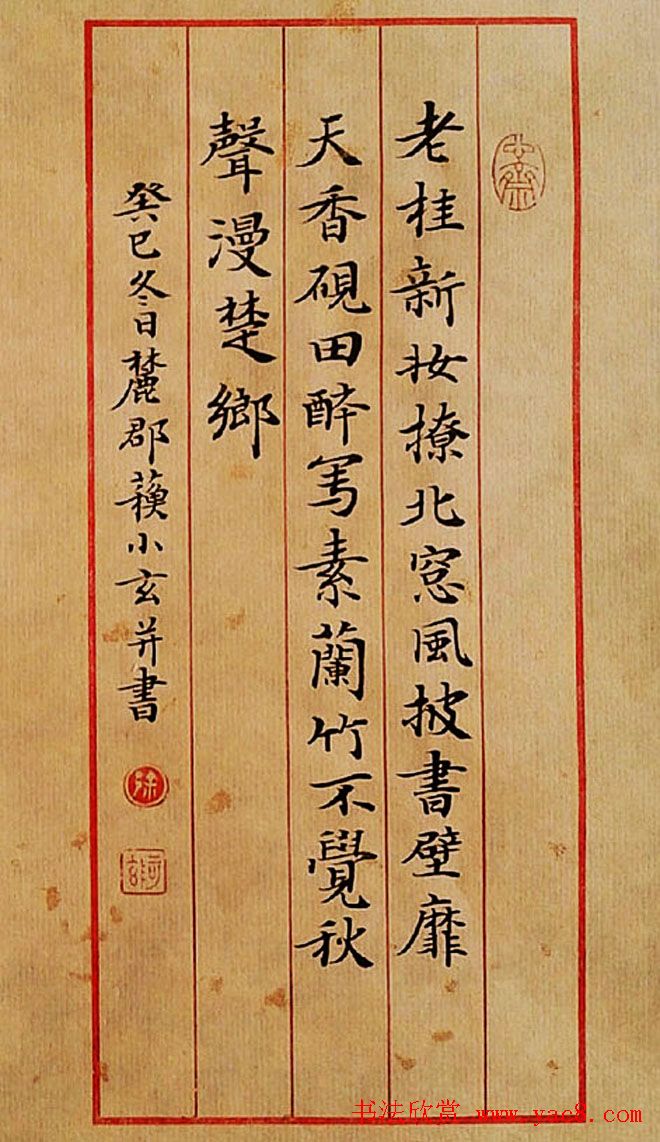 老桂新妆撩北窓風披書壁靡
天香硯田醉写素蘭竹不覺秋
聲漫楚鄉
癸巳冬日麓郡蘋小玄并書
书法欣赏 www.yac8.com